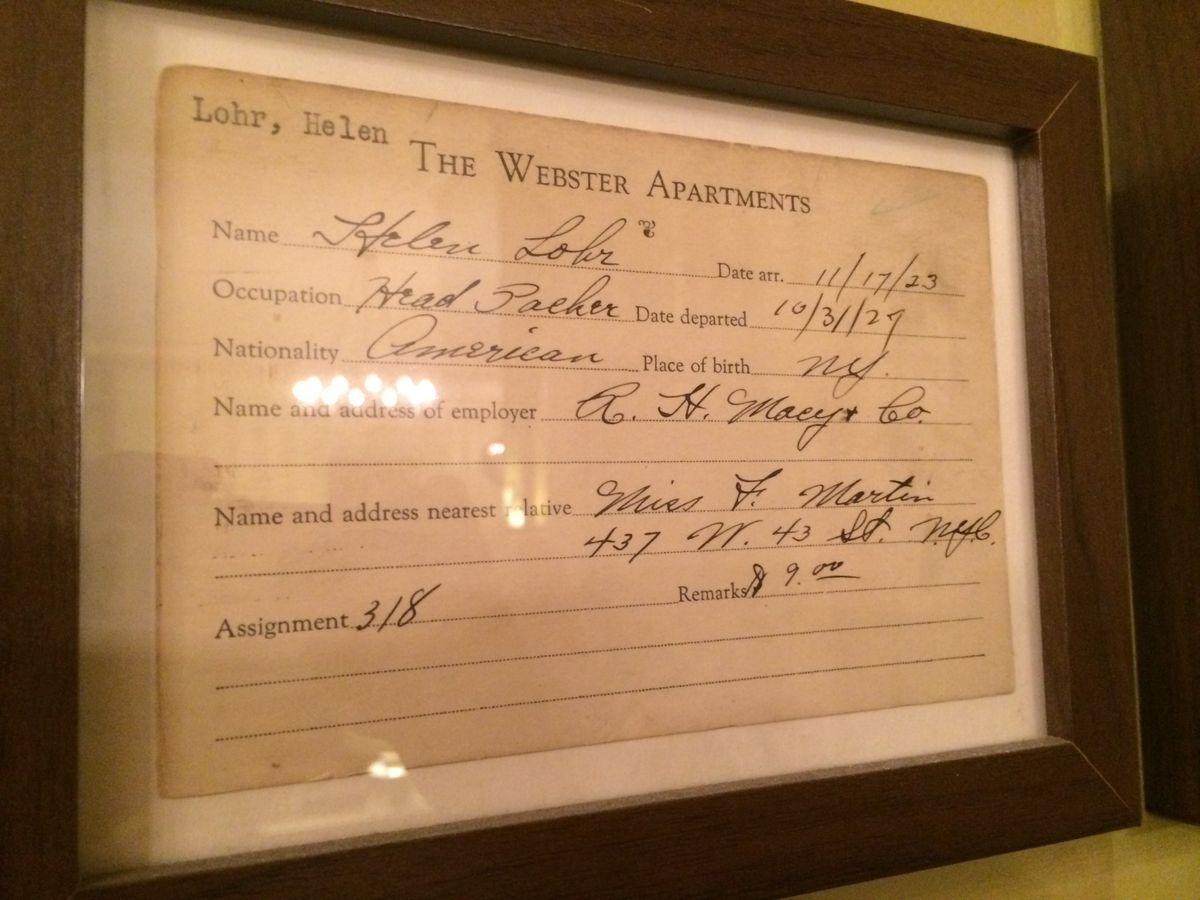 Lohr, Helen
THE WEBSTER APARTMENTS
Name Helen Lohr Date arr. 11/17/23
Occupation Head Packer Date departed 10/31/27
Nationality American Place of birth N.Y.
Name and address of employer R. H. Macy & Co.
Name and address nearest relative Miss F. Martin
437 W. 43 St. N.Y.C.
Assignment 318 Remarks $9.00